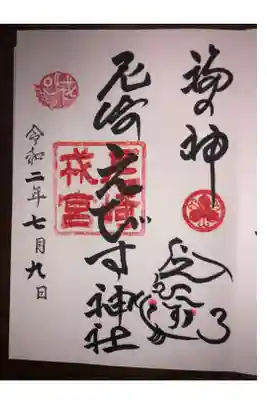 福の神
尼崎えびす神社
尼崎
戎宮
令和二年七月九日